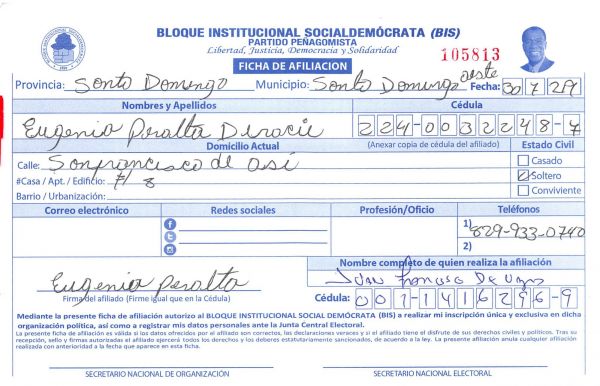 BLOQUE INSTITUCIONAL SOCIALDEMÓCRATA (BIS)
PARTIDO PEÑAGOMISTA
Libertad, Justicia, Democracia y Solidaridad
105813
FICHA DE AFILIACION
Provincia: Santo Domingo Municipio: Santo Domingo oeste Fecha: 30 7 29
Nombres y Apellidos Cédula
Eugenia Peralta 224-0032248-7
Domicilio Actual (Anexar copia de cédula del afiliado) Estado Civil
Calle: Sonfrancisco de asi Casado
#Casa / Apt. / Edificio: # 8 Soltero
Barrio / Urbanización: Conviviente
Correo electrónico Redes sociales Profesión/Oficio Teléfonos
1) 829-933-0740
2)
Nombre completo de quien realiza la afiliación
Eugenia Peralta Juan Francisco De
Firma del afiliado (Firme igual que en la Cédula) Cédula: 001-1416296-9
Mediante la presente ficha de afiliación autorizo al BLOQUE INSTITUCIONAL SOCIAL DEMÓCRATA (BIS) a realizar mi inscripción única y exclusiva en dicha
organización política, así como a registrar mis datos personales ante la Junta Central Electoral.
La presente ficha de afiliación es válida si los datos ofrecidos por el afiliado son correctos, las declaraciones veraces y si el afiliado tiene el disfrute de sus derechos civiles y políticos. Tras su
recepción, sello y firmas autorizadas el afiliado ejercerá todos los derechos y los deberes estatutariamente sancionados, de acuerdo a la ley. La presente afiliación anula cualquier afiliación
realizada con anterioridad a la fecha que aparece en esta ficha.
SECRETARIO NACIONAL DE ORGANIZACIÓN SECRETARIO NACIONAL ELECTORAL